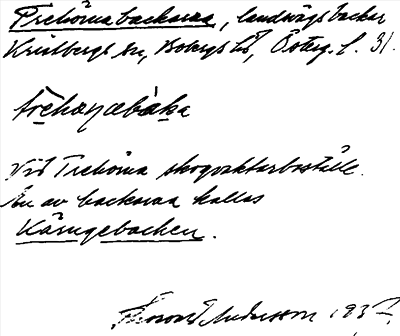 Trehörnabackarna, landsvägsbackar
Kristbergs sn, Bobergs hd, Österg. l. 31.
Vid Trehörna skogvaktarboställe.
En av backarna kallas
Käringebacken.
Andersson 193